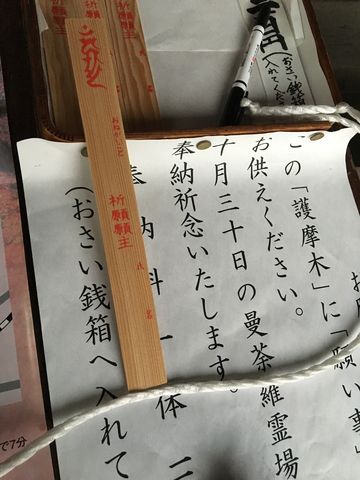 この「護摩木」に「願い事」
お供えください。
十月三十日の曼荼羅霊場
奉納祈念いたします。
奉納料 一体 二
(おさい銭箱へ入れて
おねがいごと
祈願願主
氏名
(おさい銭箱
入れてくださ
で7分